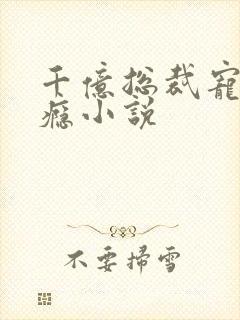 千億总裁寵
癮小説
不要掃雪